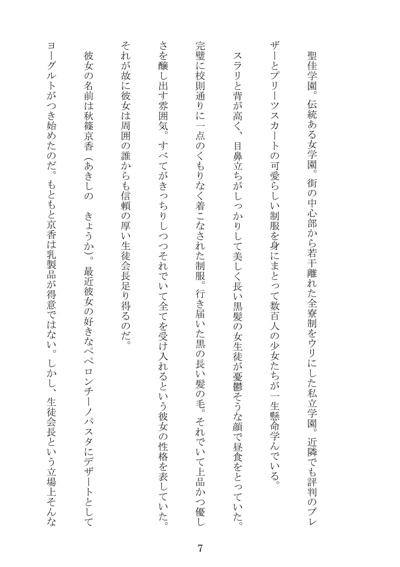 聖佳学園。伝統ある女学園。街の中心部から若干離れた全寮制をウリにした私立学園。近隣でも評判のブレ
ザーとプリーツスカートの可愛らしい制服を身にまとって数百人の少女たちが一生懸命学んでいる。
スラリと背が高く、目鼻立ちがしっかりして美しく長い黒髪の女生徒が憂鬱そうな顔で昼食をとっていた。
完璧に校則通りに一点のくもりなく着こなされた制服。行き届いた黒の長い髪の毛。それでいて上品かつ優し
さを醸し出す雰囲気。すべてがきっちりしつつそれでいて全てを受け入れるという彼女の性格を表していた。
それが故に彼女は周囲の誰からも信頼の厚い生徒会長足り得るのだ。
彼女の名前は秋篠京香（あきしの　きょうか）。最近彼女の好きなペペロンチーノパスタにデザートとして
ヨーグルトがつき始めたのだ。もともと京香は乳製品が得意ではない。しかし、生徒会長という立場上そんな
7